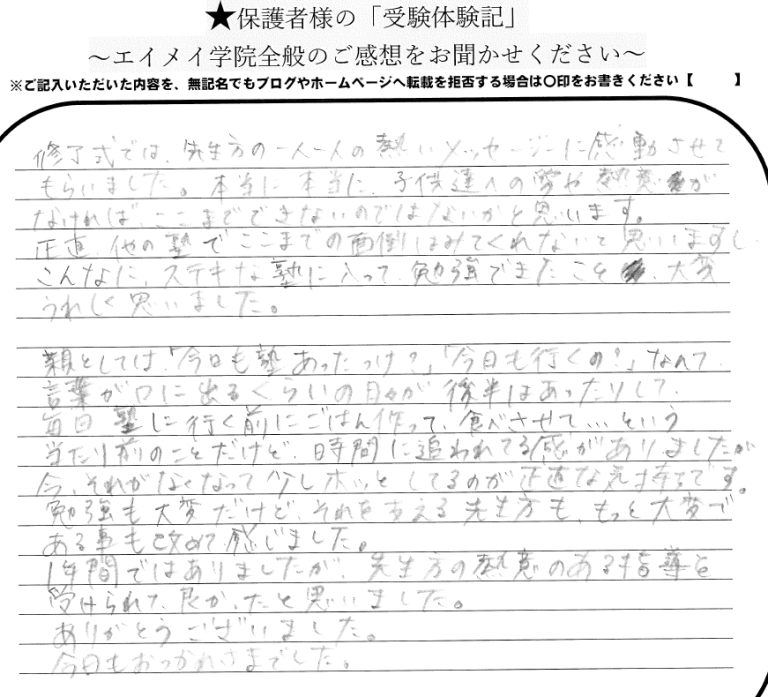 ★保護者様の「受験体験記」
～エイメイ学院全般のご感想をお聞かせください～
※ご記入いただいた内容を、無記名でもブログやホームページへ転載を拒否する場合は〇印をお書きください【　　】
修了式では、先生方の一人一人の熱いメッセージに感動させて
もらいました。本当に本当に、子供達への愛や熱意が
なければ、ここまでできないのではないかと思います。
正直、他の塾でここまでの面倒はみてくれないと思いますし、
こんなに、ステキな塾に入って、勉強できたこと、大変
うれしく思いました。
親としては、「今日も塾あったっけ?」「今日も行くの?」なんて
言葉が口に出るくらいの日々が後半はあったりして、
毎日塾に行く前にごはん作って、食べさせて...という
当たり前のことだけど、時間に追われてる感がありましたが
今、それがなくなって少しホッとしてるのが正直な気持ちです。
勉強も大変だけど、それを支える先生方も、もっと大変で
ある事も改めて感じました。
1年間ではありましたが、先生方の熱意のある指導を
受けられて、良かったと思いました。
ありがとうございました。
今日もおつかれさまでした。